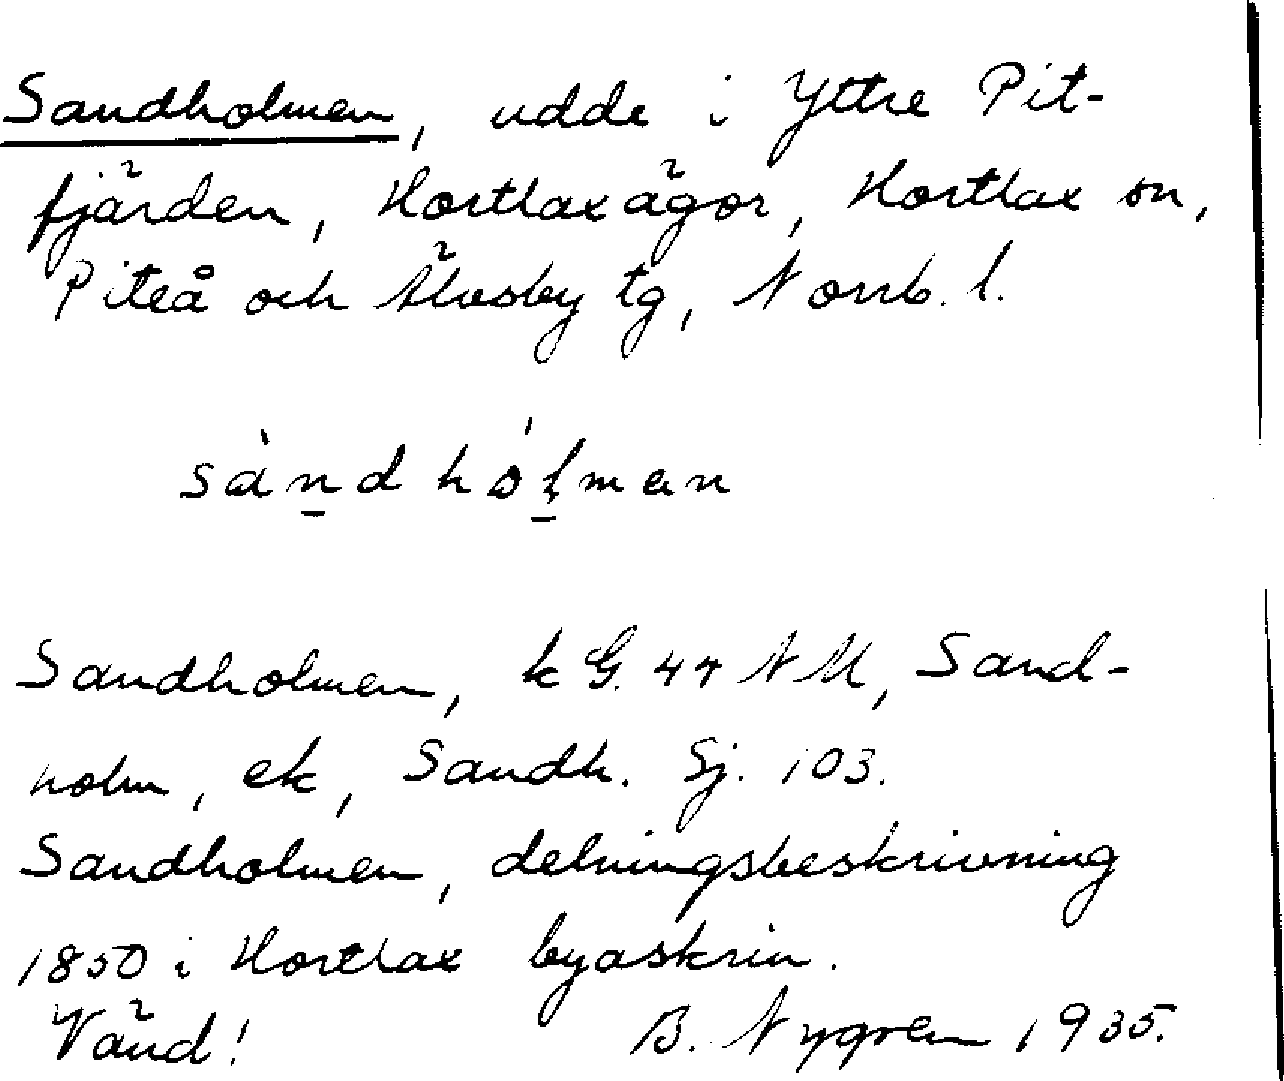 Sandholmen, udde i Yttre Pit-
fjärden, Hortlax ägor, Hortlax sn,
Piteå och Älvsby tg, Norrb. l.
sàndhólman
Sandholmen, k G. 44 NM, Sand-
holm, ek, Sandh. Sj. 103.
Sandholmen, delningsbeskrivning
1850 i Hortlax byaskrin.
Vänd! B. Nygren 1935.